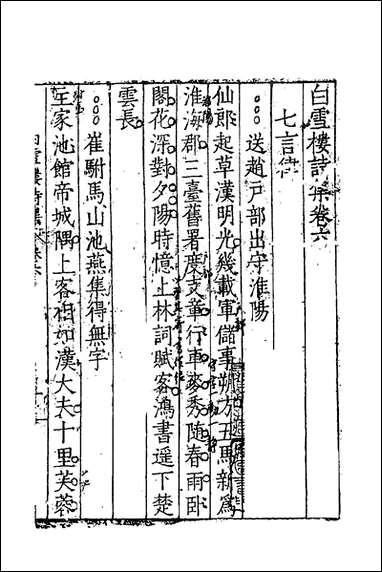 白雪樓詩集卷六
七言律
送趙戶部出守淮陽
仙郎起草漢明光幾載軍儲事朔方五馬新爲
淮海郡三臺舊署度支章行車麥秀隨春雨臥
閣花深對夕陽時憶上林詞賦客鴻書遥下楚
雲長
崔駙馬山池燕集得無字
王家池館帝城隅上客相如漢大夫十里芙蓉